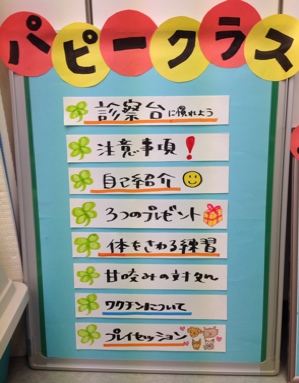 パピークラス
診察台に慣れよう
注意事項!
自己紹介
3つのプレゼント
体をさわる練習
甘咬みの対処
ワクチンについて
プレイセッション